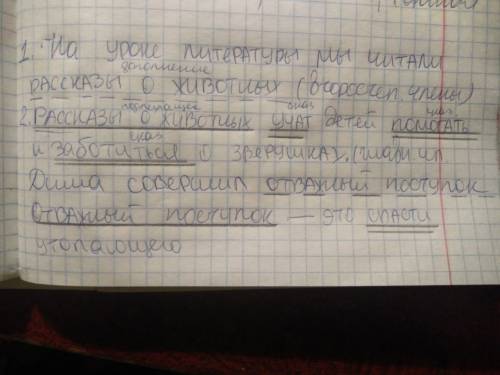 1. На уроке литературы мы читали
дополнение
рассказы о животных (второстеп. члены)
подлежащее сказ сказ
2. Рассказы о животных учат детей помогать
сказ
и заботиться о зверушках. (главн чл
Дима совершил отважный поступок
Отважный поступок — это спасти
утопающего